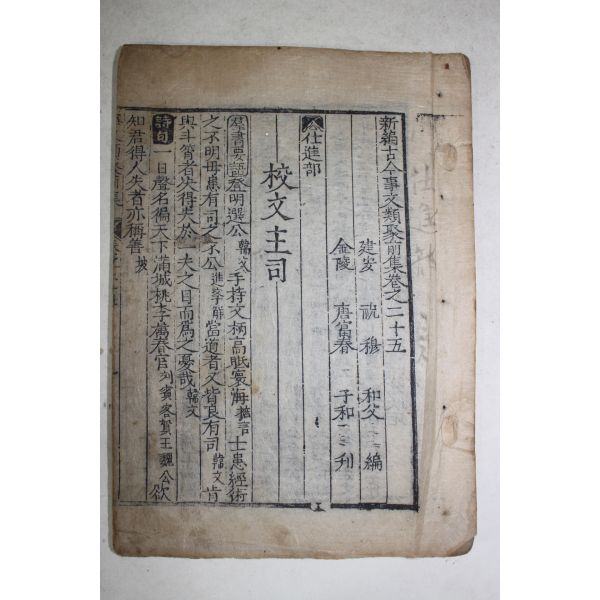 新編古今事文類聚前集卷之二十五
建安 祝穆 和父 編
金陵 唐富春 子和 刊
仕進部
校文主司
羣書要語登明選公韓文手持文柄高眡寰海摭言士患經術
之不明毋患有司之不公進學解當道者又皆良有司韓文肯
與斗筲者決得失於一夫之目而爲之憂哉韓文
詩句一日聲名徧天下滿城桃李屬春官刘賓客賀王魏公欲
知君得人失者亦稱善坡